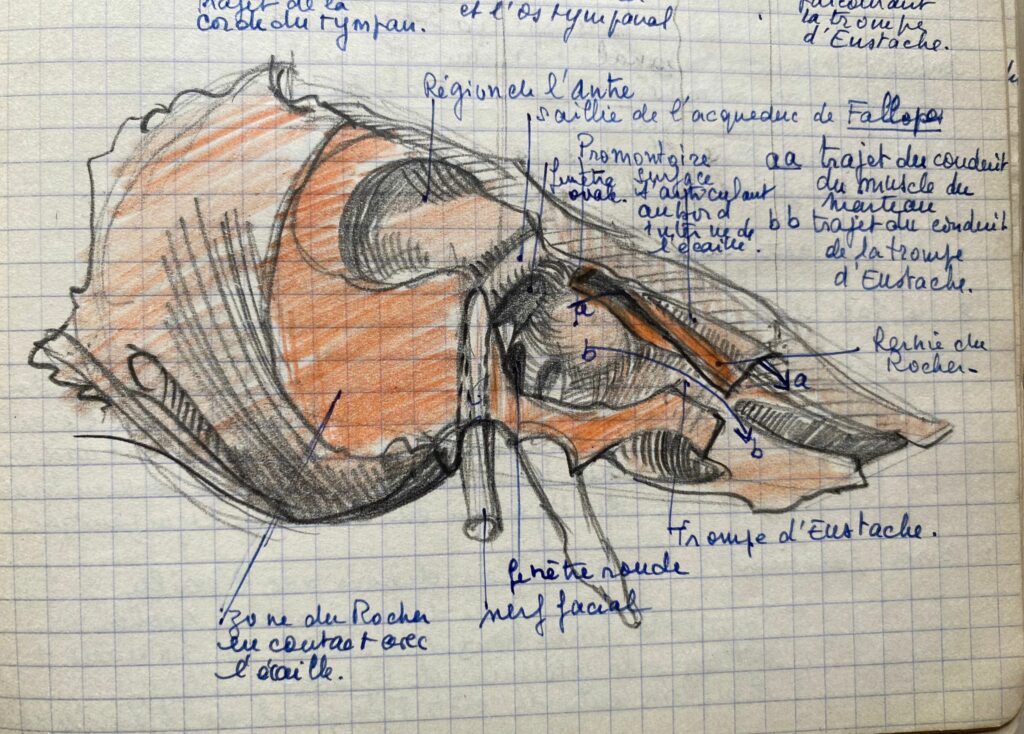 Trajet de la
corde du tympan.
et l'os tympanal
parcourant
la trompe
d'Eustache.
Région de l'antre
saillie de l'acqueduc de Fallope
Promontoire
fenêtre
ovale.
surface
s'articulant
au bord
interne de
l'écaille.
aa trajet du conduit
du muscle du
marteau
bb trajet du conduit
de la trompe
d'Eustache.
a
b
Hernie du
Rocher-
a
b
Trompe d'Eustache.
fenêtre ronde
nerf facial
Zone du Rocher
en contact avec
l'écaille.